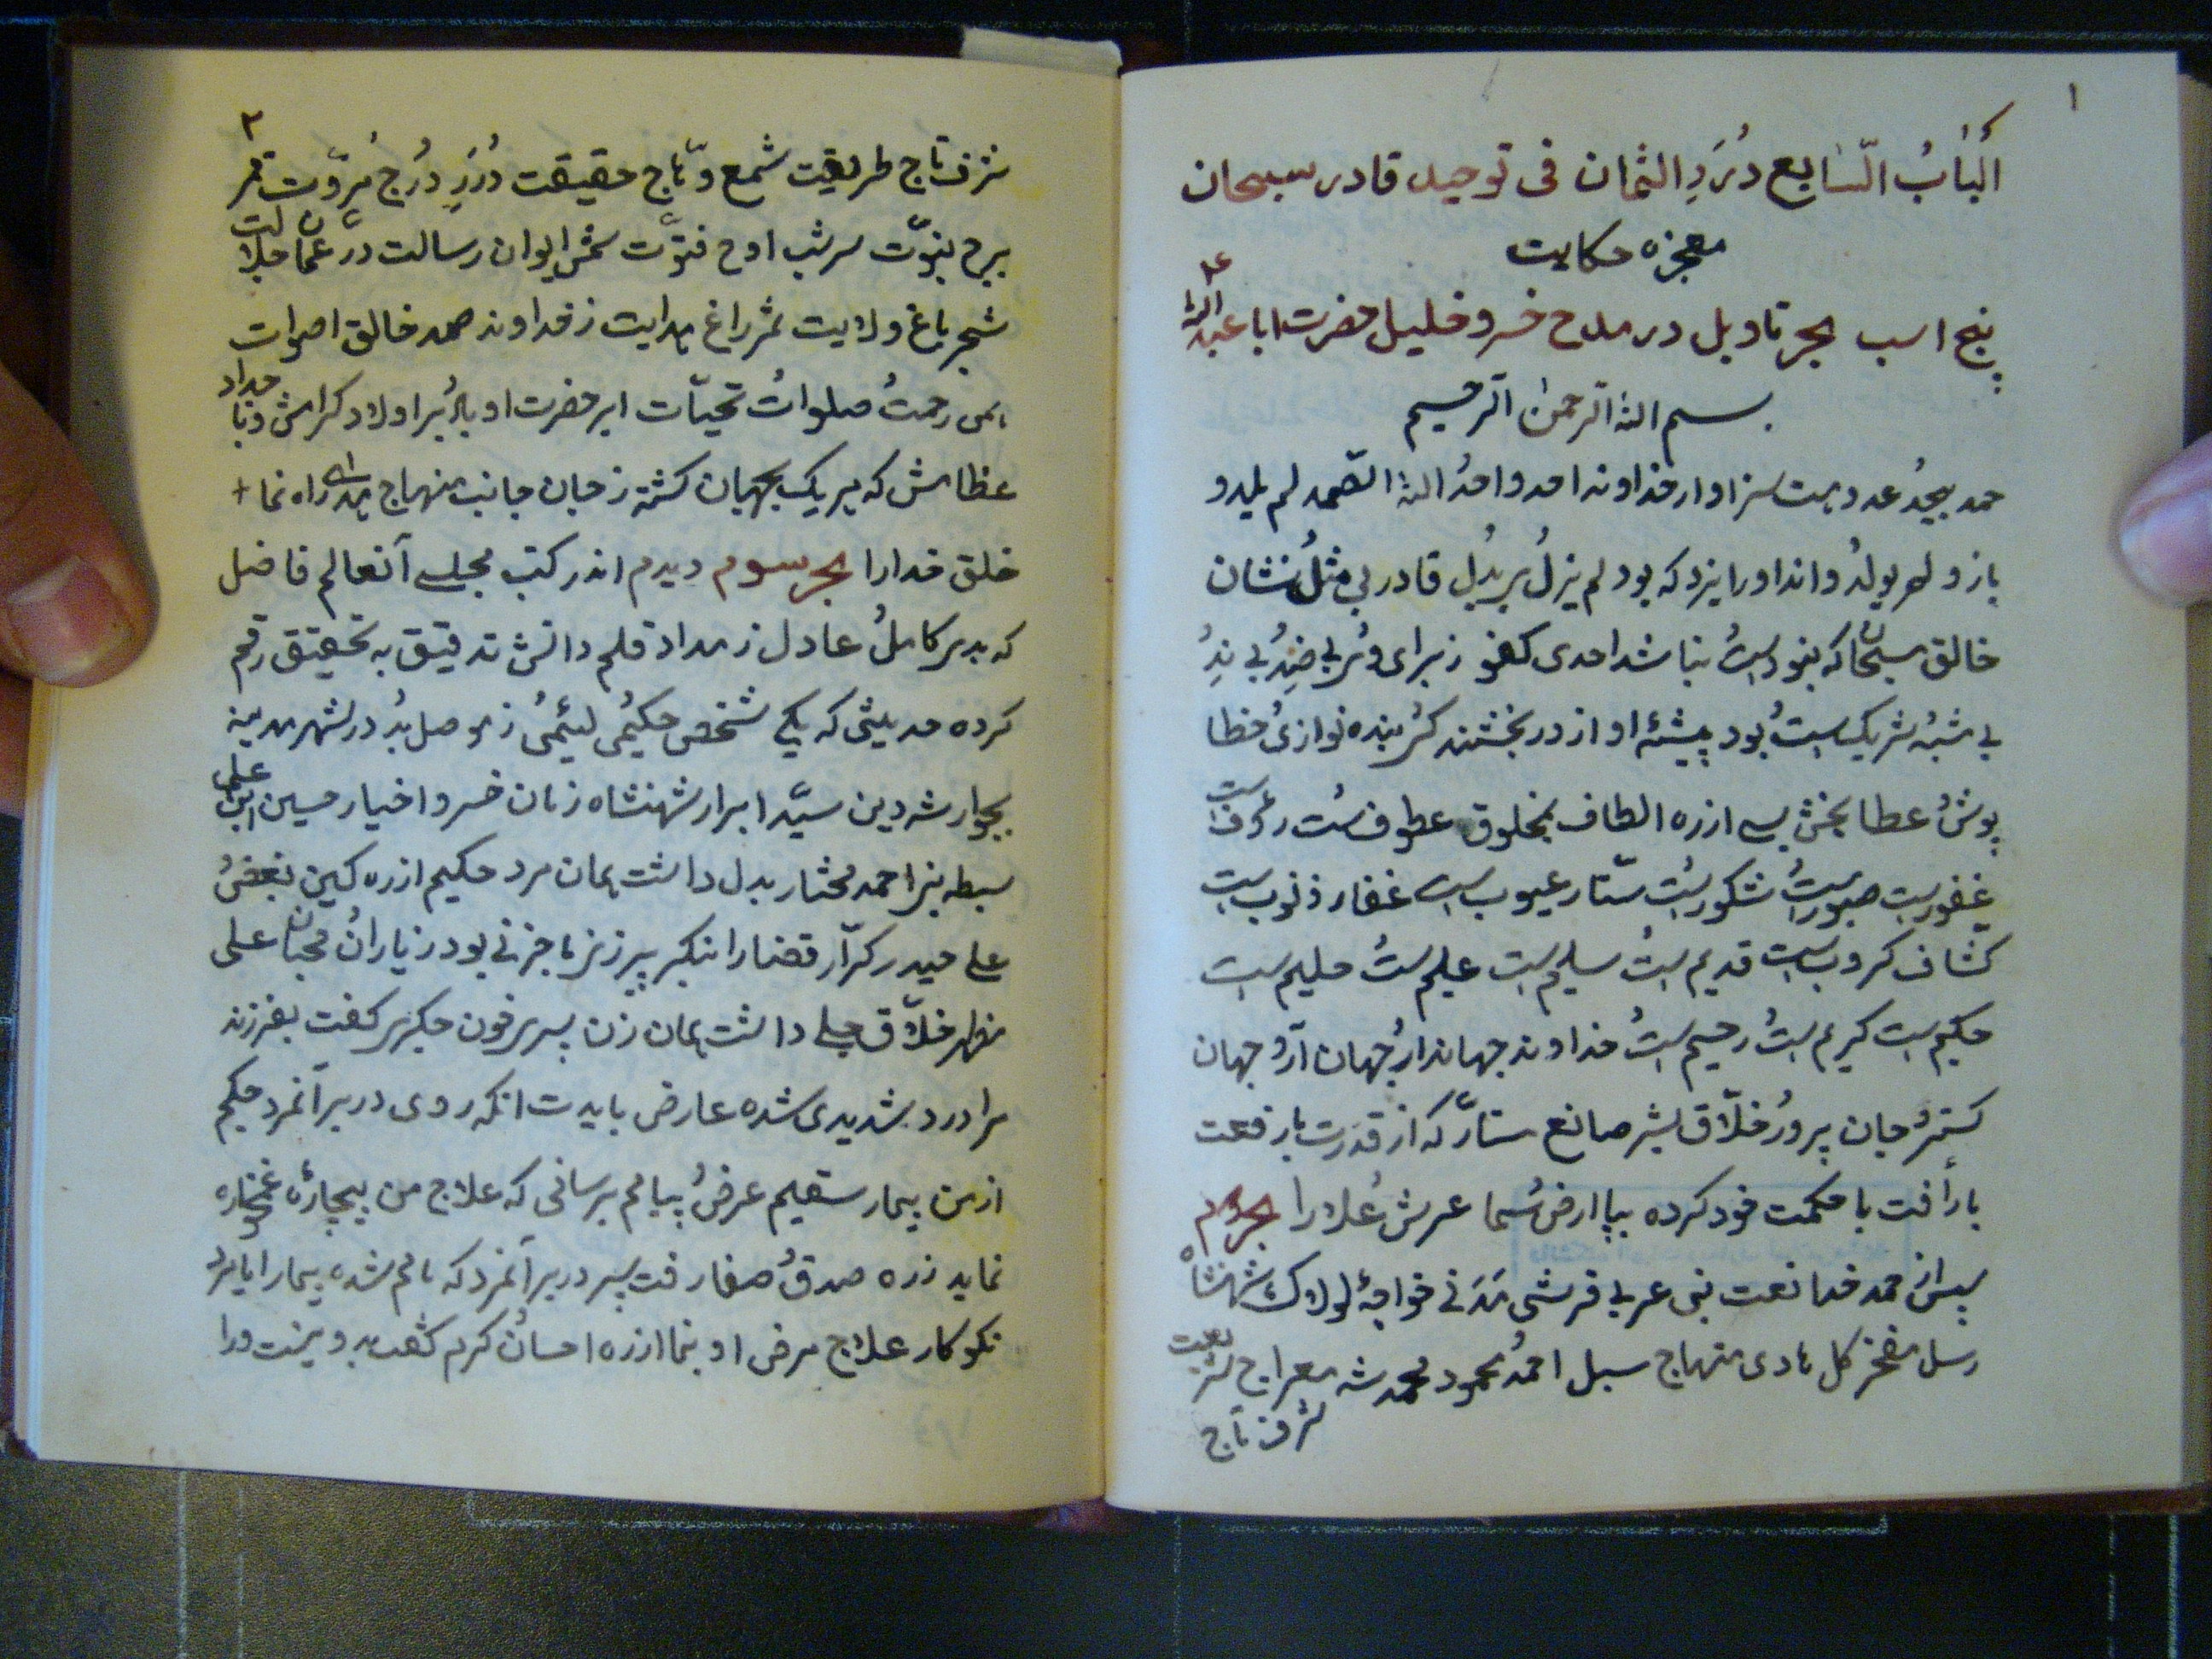 ۱
اَلبٰابُ السّٰابع دُرَرِ الثمان فی توحید قادر سبحان
معجزه حکایت
پنج اسب بحر تاویل در مدح خسرو خلیل حضرت ابا عبدالله ع
بسم الله الرحمن الرحیم
حمد بیحدُ عدد سزاوار خداوند احد واحدُ الله الصّمد لم یلد و
باز و لم یولدُ داند او را ایزد که بود لم یزلُ بر بدل قادر بی مثلُ نشان
خالق سبحان که نبودستُ نباشد احدی کفو ز برای وُ بی ضِدُ بی نِدُ
بی شبهُ شریکستُ بود پیشهٔ او از در بخشند کُر بنده نوازیُ خطا
پوشُ عطا بخش بسی از ره الطاف بمخلوق عطوف ستُ رئوف است
غفورست صبورستُ شکورستُ ستّار عیوب ست غفار ذنوب ست
کشّاف کروب ست قدیم ستُ سلیم ست علیم ستُ حلیم ست
حکیم ست کریم ستُ رحیم ستُ خداوند جهاندارُ جهان آرُ جهان
گسترُ جان پرورُ خلّاق بشر صانع ستّار که از قدرت با رفعت
با رأفت با حکمت خود کرده بپا ارضُ سُما عرش عُلا را بحر دوم
پس از حمد خدا نعت نبی عربی قرشی مَدَنی خواجهٔ لولاک شهنشاه
رسل مفخر کل هادی منهاج سبل احمدُ محمود محمد شه معراج شریعت
شرف تاج
۲
شرف تاج طریقت شمع وهّاج حقیقت دُرَرِ دُرج مُروّت قمر
برج نبوّت سر شب اوج فتوّت شمس ایوان رسالت درّ عمّان جلالت
شجر باغ ولایت ثمر راغ هدایت ز خداوند صمد خالق اصوات
همی رحمتُ صلواتُ تحیّات ابر حضرت او باد بُر اولاد کرامش و با جداد
عظامش که بهر یک بجهان گشته ز جان جانب منهاج هدی راه نما +
خلق خدا را بحر سوم دیدم اندر کتب مجلسی آنعالم فاضل
که بدی کاملُ عادل ز مداد قلم دانش تدقیق به تحقیق رقم
کرده حدیثی که یکی شخص حکیمُی لئیمُی ز موصل بُد در شهر مدینه
بجوار شه دین سیّد ابرار شهنشاه زمان خسرو اخیار حسین ابن علی
سبط نبز احمد مختار بدل داشت همان مرد حکیم از ره کین بغضُ
علی حیدر کرّار قضا را نگر پیر زنی عاجزنی بود ز یارانُ محبان علی
مظهر خلّاق جلی داشت همان زن پسری خون جگری گفت بفرزند
مرا درد شدیدی شده عارض بایدت انکه روی در بر آنمرد حکیم
از من بیمار سقیم عرضُ پیامم برسانی که علاج من بیچارهٔ غمخواره
نماید ز ره صدقُ صفا رفت پسر در بر آنمرد که مامم شده بیمار ایا مرد
نکوکار علاج مرض او بنما از ره احسانُ کرم گفت بدو نیست ورا